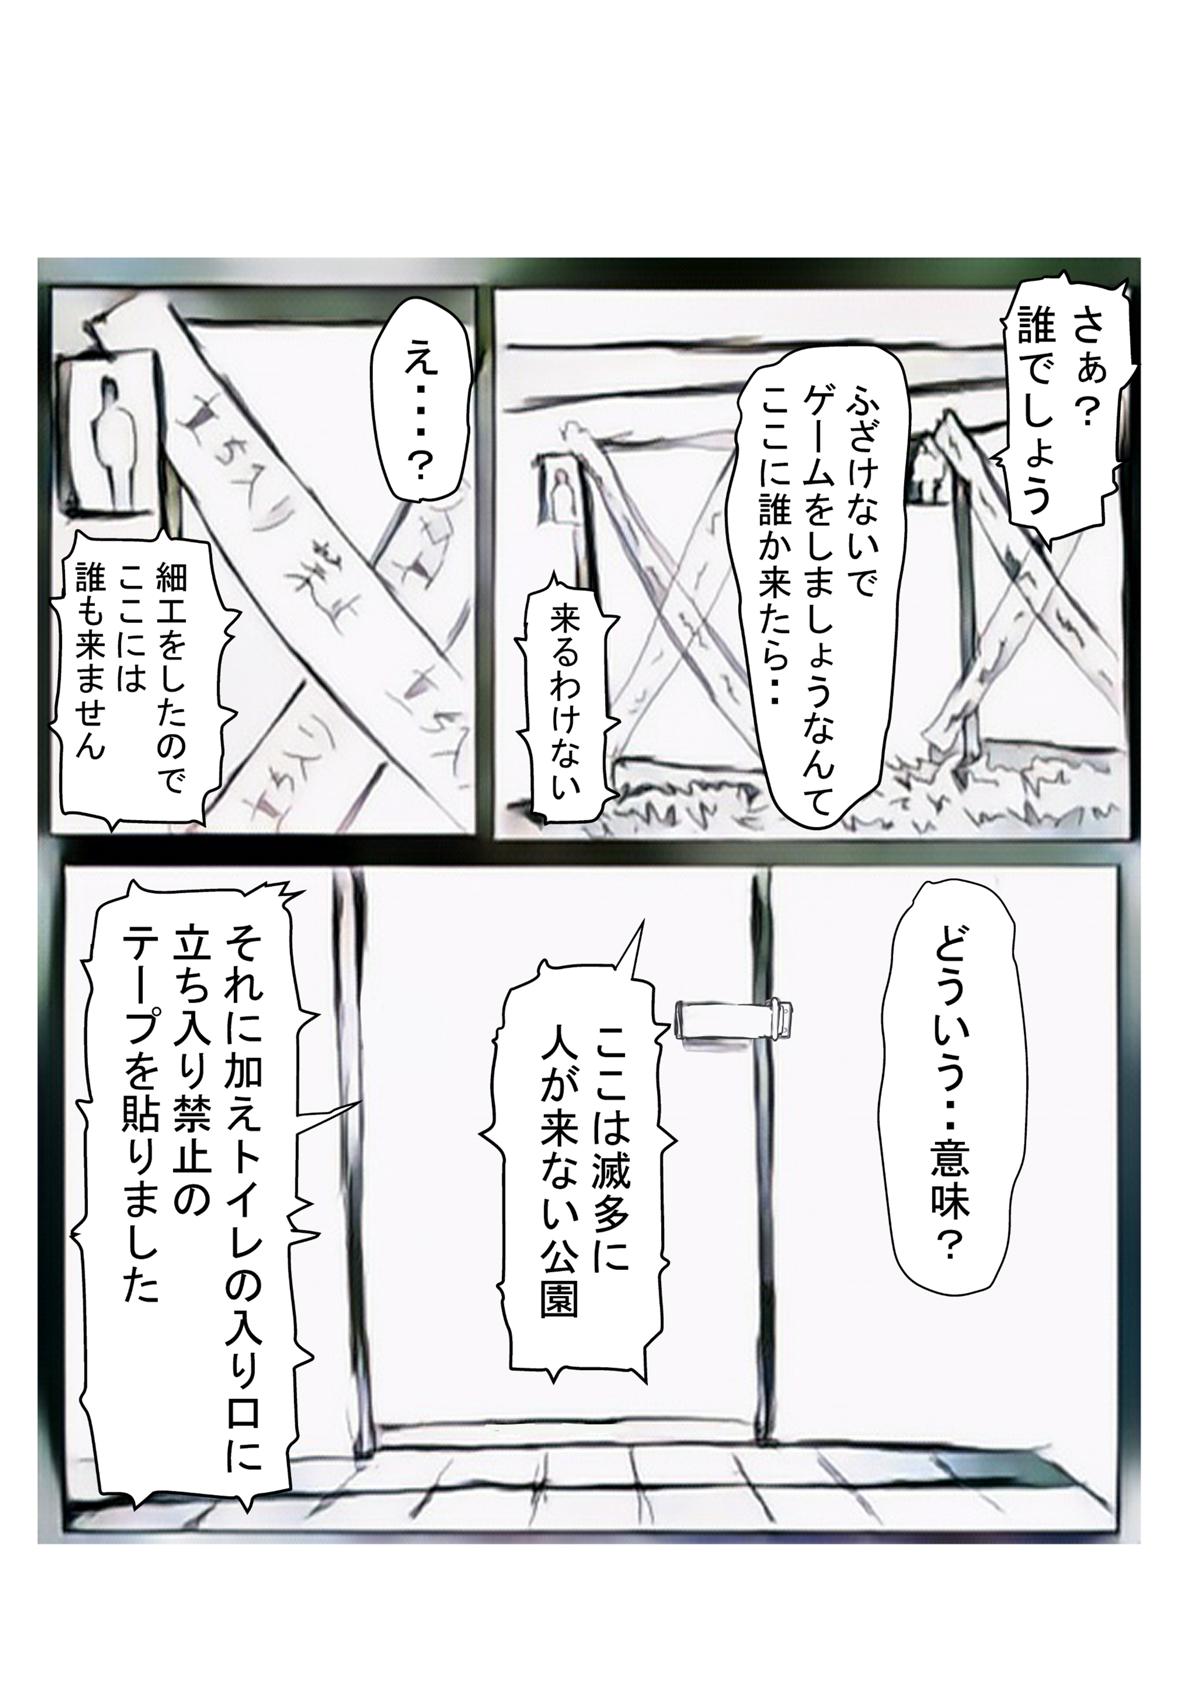 さぁ?
誰でしょう
ふざけないで
ゲームをしましょうなんて
ここに誰か来たら・・
来るわけない
え・・・?
立ち入り禁止
立ち入
立ち入り
細工をしたので
ここには
誰も来ません
どういう・・意味?
ここは滅多に
人が来ない公園
それに加えトイレの入り口に
立ち入り禁止の
テープを貼りました